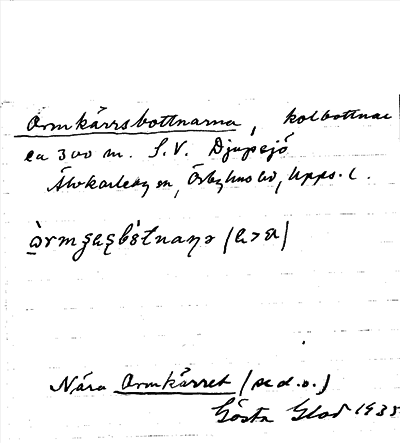 Ormkärrsbottnarna, kolbottnar
ca 300 m. S.V. Djupsjö
Älvkarleby sn, Örbyhus hd, Upps. l.
Nära Ormkärret (se d.o.)
Gösta Glad 1935